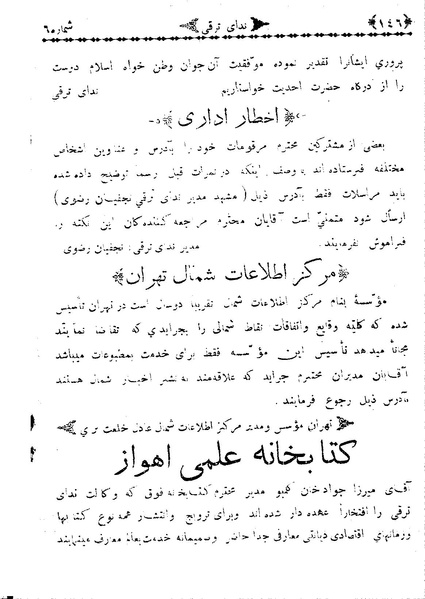 ﴿۱۴۶﴾ ندای ترقی شماره ۶
پروری ایشانرا تقدیر نموده موفقیت آن جوان وطن خواه اسلام دوست
را از درگاه حضرت احدیت خواستاریم ندای ترقی
اخطار اداری
بعضی از مشترکین محترم مرقومات خود را بآدرس و عناوین اشخاص
مختلفه فرستاده اند با وصف اینکه در نمرات قبل رسما توضیح داده شده
باید مراسلات فقط بآدرس ذیل (مشهد مدیر ندای ترقی نجفیان رضوی)
ارسال شود متمنی است آقایان محترم مراجعه کنندگان این نکته را
فراموش نفرمایند. مدیر ندای ترقی: نجفیان رضوی
﴿مرکز اطلاعات شمال تهران﴾
مؤسسهٔ بنام مرکز اطلاعات شمال تقریبا دو سال است در تهران تأسیس
شده که کلیه وقایع و اتفاقات نقاط شمالی را بجرایدی که تقاضا نمایند
مجاناً میدهد تأسیس این مؤسسه فقط برای خدمت بمطبوعات میباشد
آقایان مدیران محترم جراید که علاقه‌مند به نشر اخبار شمال هستند
بآدرس ذیل رجوع فرمایند
تهران مؤسس و مدیر مرکز اطلاعات شمال عادل خلعت بری
کتابخانه علمی اهواز
آقای میرزا جواد خان کمبو مدیر محترم کتابخانه فوق که وکالت ندای
ترقی را افتخاراً عهده دار شده اند و برای ترویج و انتشار همه نوع کتابها
و رمانهای اقتصادی دیانتی معارفی جدا حاضر و صمیمانه خدمت بعالم معارف مینمایند